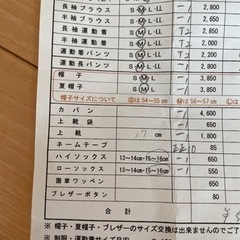 長袖ブラウス S M L・LL -1 2,800
半袖ブラウス S M L・LL -1 2,650
長袖運動着 S M L・LL T2 2,800
半袖運動着 S M L・LL T2
運動着パンツ S M L・LL
運動長パンツ S M L・LL -1 2,900
帽子 S M L -1 3,850
夏帽子 S M L -1 3,850
帽子サイズについて Ⓢは54~55㎝ Ⓜは56~57㎝
カバン -1 4,600
上靴袋 -1 650
上靴 17㎝ -1
ネームテープ 2210 85
ハイソックス 13~14cm・15~16cm 550
ローソックス 13~14cm・15~16cm -1 550
園章ワッペン 650
ブレザーボタン 80
合計 ¥
※ 帽子・夏帽子・ブレザーのサイズ交換は出来ませんのでご了